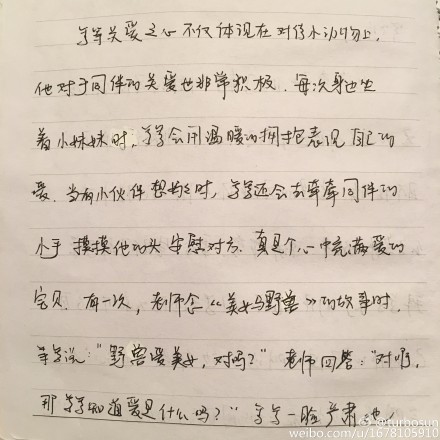 等等关爱之心不仅体现在对待小动物上,
他对于同伴的关爱也非常积极.每次身边坐
着小妹妹时,等等会用温暖的拥抱表现自己的
爱.当有小伙伴想妈妈时,等等还会去牵牵同伴的
小手 摸摸他的头 安慰对方.真是个心中充满爱的
宝贝.有一次,老师念《美女与野兽》的故事时.
等等说:"野兽爱美女,对吗?"老师回答:"对呀,
那等等知道爱是什么吗?"等等一脸严肃地
@turbosun
weibo.com/u/1678105910